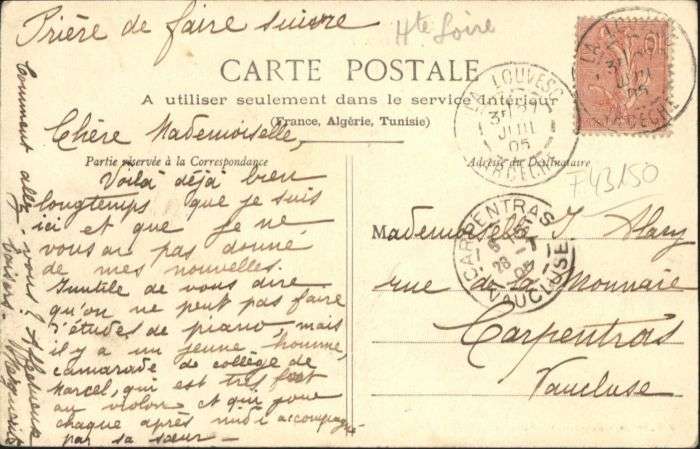 Prière de faire suivre
Hte Loire
CARTE POSTALE
A utiliser seulement dans le service intérieur
(France, Algérie, Tunisie)
LA LOUVESC
JUIL
05
ARDÈCHE
ARDÈCHE
Chère Mademoiselle,
Partie réservée à la Correspondance
Adresse du Destinataire
F43150
Voilà déjà bien
longtemps que je suis
ici et que je ne
vous ai pas donné
de mes nouvelles.
Inutile de vous dire
qu'on ne peut pas faire
d'études de piano mais
il y a un jeune homme,
camarade de collège de
Marcel, qui est très fort
au violon et qui joue
chaque après midi accompagné
par sa sœur -
Comment allez-vous? Affectueux
baisers. Marguerite
CARPENTRAS
28
05
VAUCLUSE
Mademoiselle J. Alary
rue de la Monnaie
Carpentras
Vaucluse